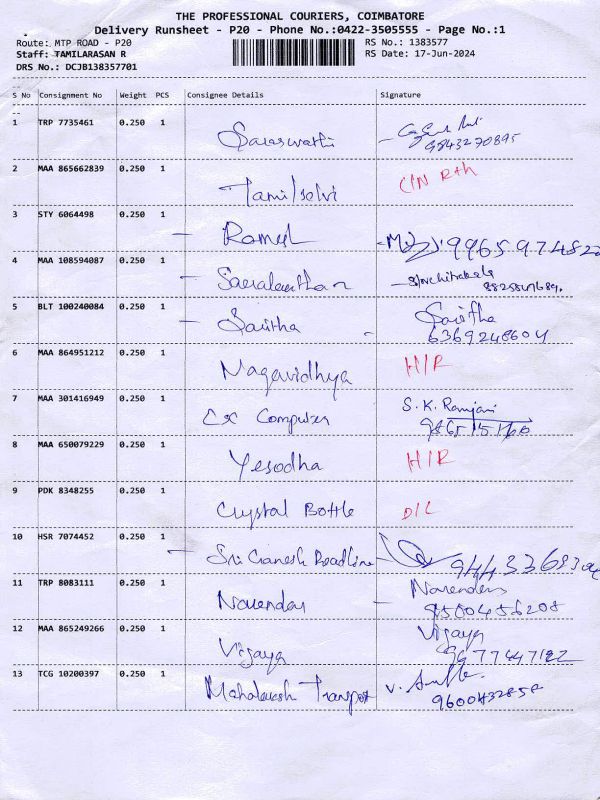 THE PROFESSIONAL COURIERS, COIMBATORE
Delivery Runsheet - P20 - Phone No.:0422-3505555 - Page No.:1
Route: MTP ROAD - P20 RS No.: 1383577
Staff: TAMILARASAN R RS Date: 17-Jun-2024
DRS No.: DCJB138357701
S No Consignment No Weight PCS Consignee Details Signature
1 TRP 7735461 0.250 1 Saraswathi
9843270895
2 MAA 865662839 0.250 1 Tamilselvi
3 STY 6064498 0.250 1
4 MAA 108594087 0.250 1
5 BLT 100240084 0.250 1 Savitha Savitha
6369248604
6 MAA 864951212 0.250 1 Nagavidhya H/R
7 MAA 301416949 0.250 1 Computer S.K. Ranjani
8 MAA 650079229 0.250 1 Yesodha H/R
9 PDK 8348255 0.250 1 Crystal Bottle D/L
10 HSR 7074452 0.250 1 Sri Ganesh
11 TRP 8083111 0.250 1 Narendar Narendar
9500456208
12 MAA 865249266 0.250 1 Vijaya Vijaya
9677447122
13 TCG 10200397 0.250 1 V.